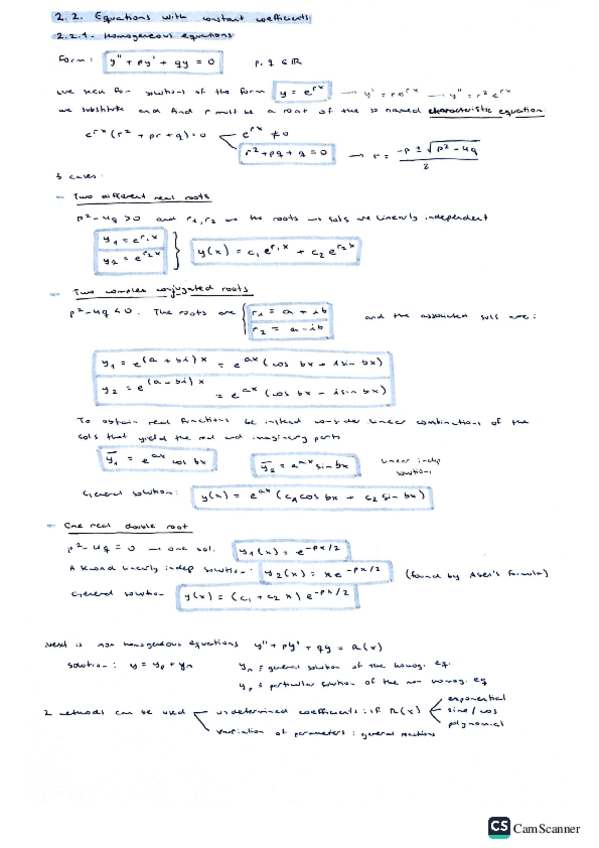 2.2. Equations with constant coefficients
2.2.1. Homogeneous equations
Form: y'' + py' + qy = 0 p, q ∈ ℝ
We seek for solutions of the form y = e^{rx} → y' = re^{rx} → y'' = r² e^{rx}
we substitute and find r must be a root of the so named characteristic equation
e^{rx}(r² + pr + q) = 0 e^{rx} ≠ 0
r² + pq + q = 0 → r = (-p ± √(p² - 4q)) / 2
3 cases:
- Two different real roots
p² - 4q > 0 and r1, r2 are the roots sols are linearly independent
y1 = e^{r1x}
y2 = e^{r2x} } y(x) = c1 e^{r1x} + c2 e^{r2x}
- Two complex conjugated roots
p² - 4q < 0. The roots are { r1 = a + ib
r2 = a - ib and the associated sols are:
y1 = e^{(a + bi)x} = e^{ax}(cos bx + i sin bx)
y2 = e^{(a - bi)x} = e^{ax}(cos bx - i sin bx)
To obtain real functions be instead consider linear combinations of the
sols that yield the real and imaginary parts
ȳ1 = e^{ax} cos bx ȳ2 = e^{ax} sin bx linear indep
solutions
General solution: y(x) = e^{ax}(c1 cos bx + c2 sin bx)
- One real double root
p² - 4q = 0 → one sol. y1(x) = e^{-px/2}
A second linearly indep solution: y2(x) = xe^{-px/2} (found by Abel's formula)
General solution y(x) = (c1 + c2 x) e^{-px/2}
Next is non homogeneous equations y'' + py' + qy = R(x)
solution: y = yp + yh yh = general solution of the homog. eq.
yp = particular solution of the non homog. eq
2 methods can be used undetermined coefficients: if R(x) exponential
sine / cos
polynomial
variation of parameters: general
CS CamScanner